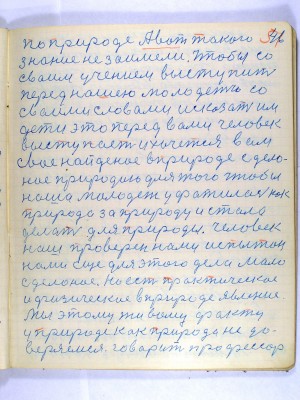 по природе А вот такого
знание не заимели. чтобы со
своим учением выступит
перед нашею молодежью со
своими словами и сказат им
дети это перед вами человек
выступает и хочется вам
свое найденое в природе сдело-
ное природию для того чтобы
наша молодеж ухватилася как
природа за природу и стала
делат для природы. человек
наш проверен нами испытан
нами еще для этого дела мало
сделоное. но ест практическое
и физическое в природе явление.
Мы этому живому факту
у природе как природа не до-
веряемся. говорит профессор